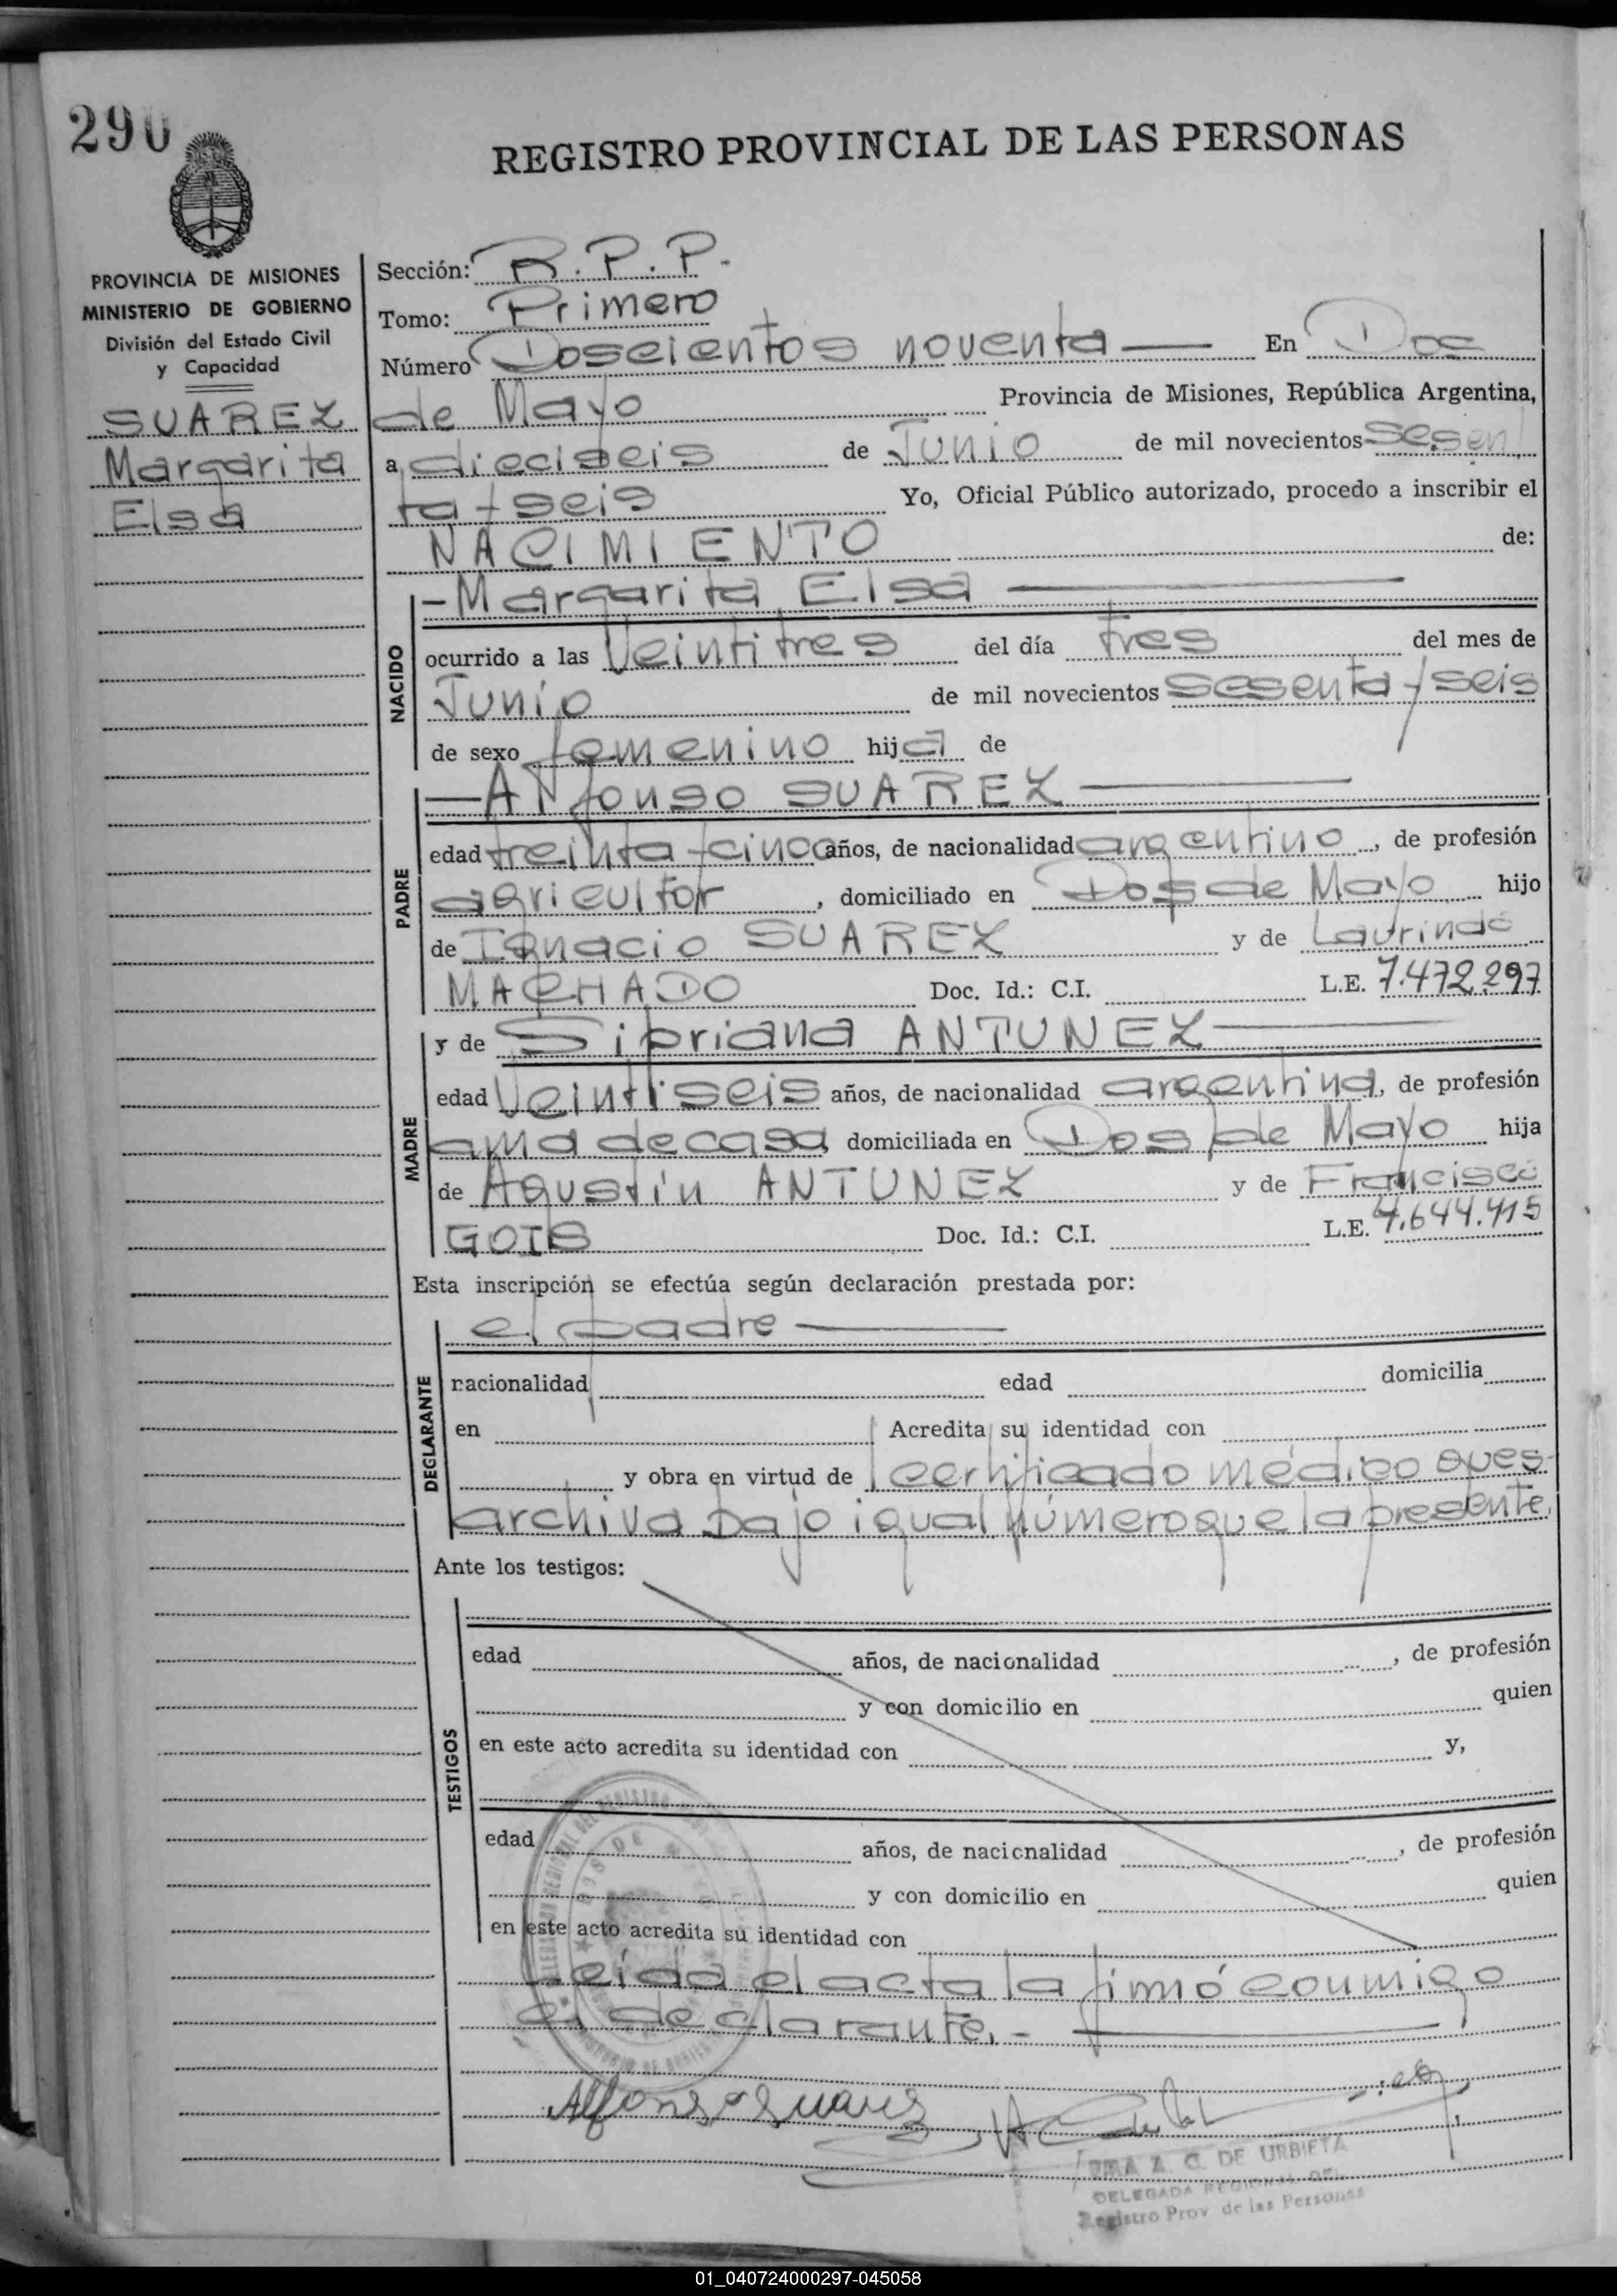 290
REGISTRO PROVINCIAL DE LAS PERSONAS
PROVINCIA DE MISIONES
MINISTERIO DE GOBIERNO
División del Estado Civil
y Capacidad
SUAREZ
Margarita
Elsa
Sección: R.P.P.
Tomo: Primero
Número Doscientos noventa — En Dos
de Mayo Provincia de Misiones, República Argentina,
a dieciseis de Junio de mil novecientos sesen
ta y seis Yo, Oficial Público autorizado, procedo a inscribir el
NACIMIENTO de:
NACIDO
- Margarita Elsa —
ocurrido a las Veintitres del día tres del mes de
Junio de mil novecientos sesenta y seis
de sexo femenino hija de
PADRE
— Alfonso SUAREZ —
edad treinta y cinco años, de nacionalidad argentino, de profesión
agricultor, domiciliado en Dos de Mayo hijo
de Ignacio SUAREZ y de Laurinda
MACHADO Doc. Id.: C.I. L.E. 7.472.297
MADRE
y de Sipriana ANTUNEZ —
edad Veintiseis años, de nacionalidad argentina, de profesión
ama de casa, domiciliada en Dos de Mayo hija
de Agustín ANTUNEZ y de Francisca
GOIS Doc. Id.: C.I. L.E. 4.644.415
Esta inscripción se efectúa según declaración prestada por:
DECLARANTE
el padre —
nacionalidad edad domicilia
en Acredita su identidad con
y obra en virtud de certificado médico que se
archiva bajo igual número que la presente.
Ante los testigos:
TESTIGOS
edad años, de nacionalidad , de profesión
y con domicilio en quien
en este acto acredita su identidad con y,
edad años, de nacionalidad , de profesión
y con domicilio en quien
en este acto acredita su identidad con
Leída el acta la firmó conmigo
el declarante. - —
Alfonso Suarez
A. C. DE URBIETA
DELEGADA REGIONAL DEL
Registro Prov de las Personas
01_040724000297-045058